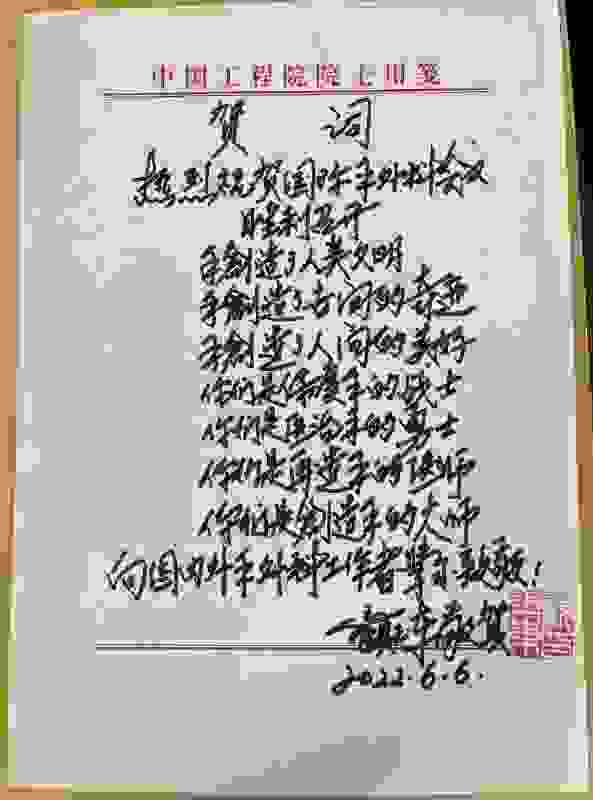 中国工程院院士用笺
贺 词
热烈祝贺国际手外科会议
胜利召开
手创造了人类文明
手创造了古间的奇迹
手创造了人间的美好
你们是保护手的战士
你们是医治手的勇士
你们是再造手的医师
你们是创造手的大师
向国内外手外科工作者学习致敬!
敬贺
2022.6.6.